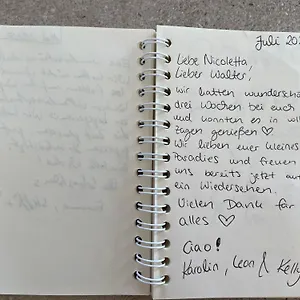 Juli 202
Liebe Nicoletta,
Lieber Walter,
wir hatten wunderschö
drei Wochen bei euch
und konnten es in voll
Zügen genießen ♡
Wir lieben euer kleines
Paradies und freuen
uns bereits jetzt auf
ein Wiedersehen.
Vielen Dank für
alles ♡
Ciao!
Karolin, Leon & Kelly